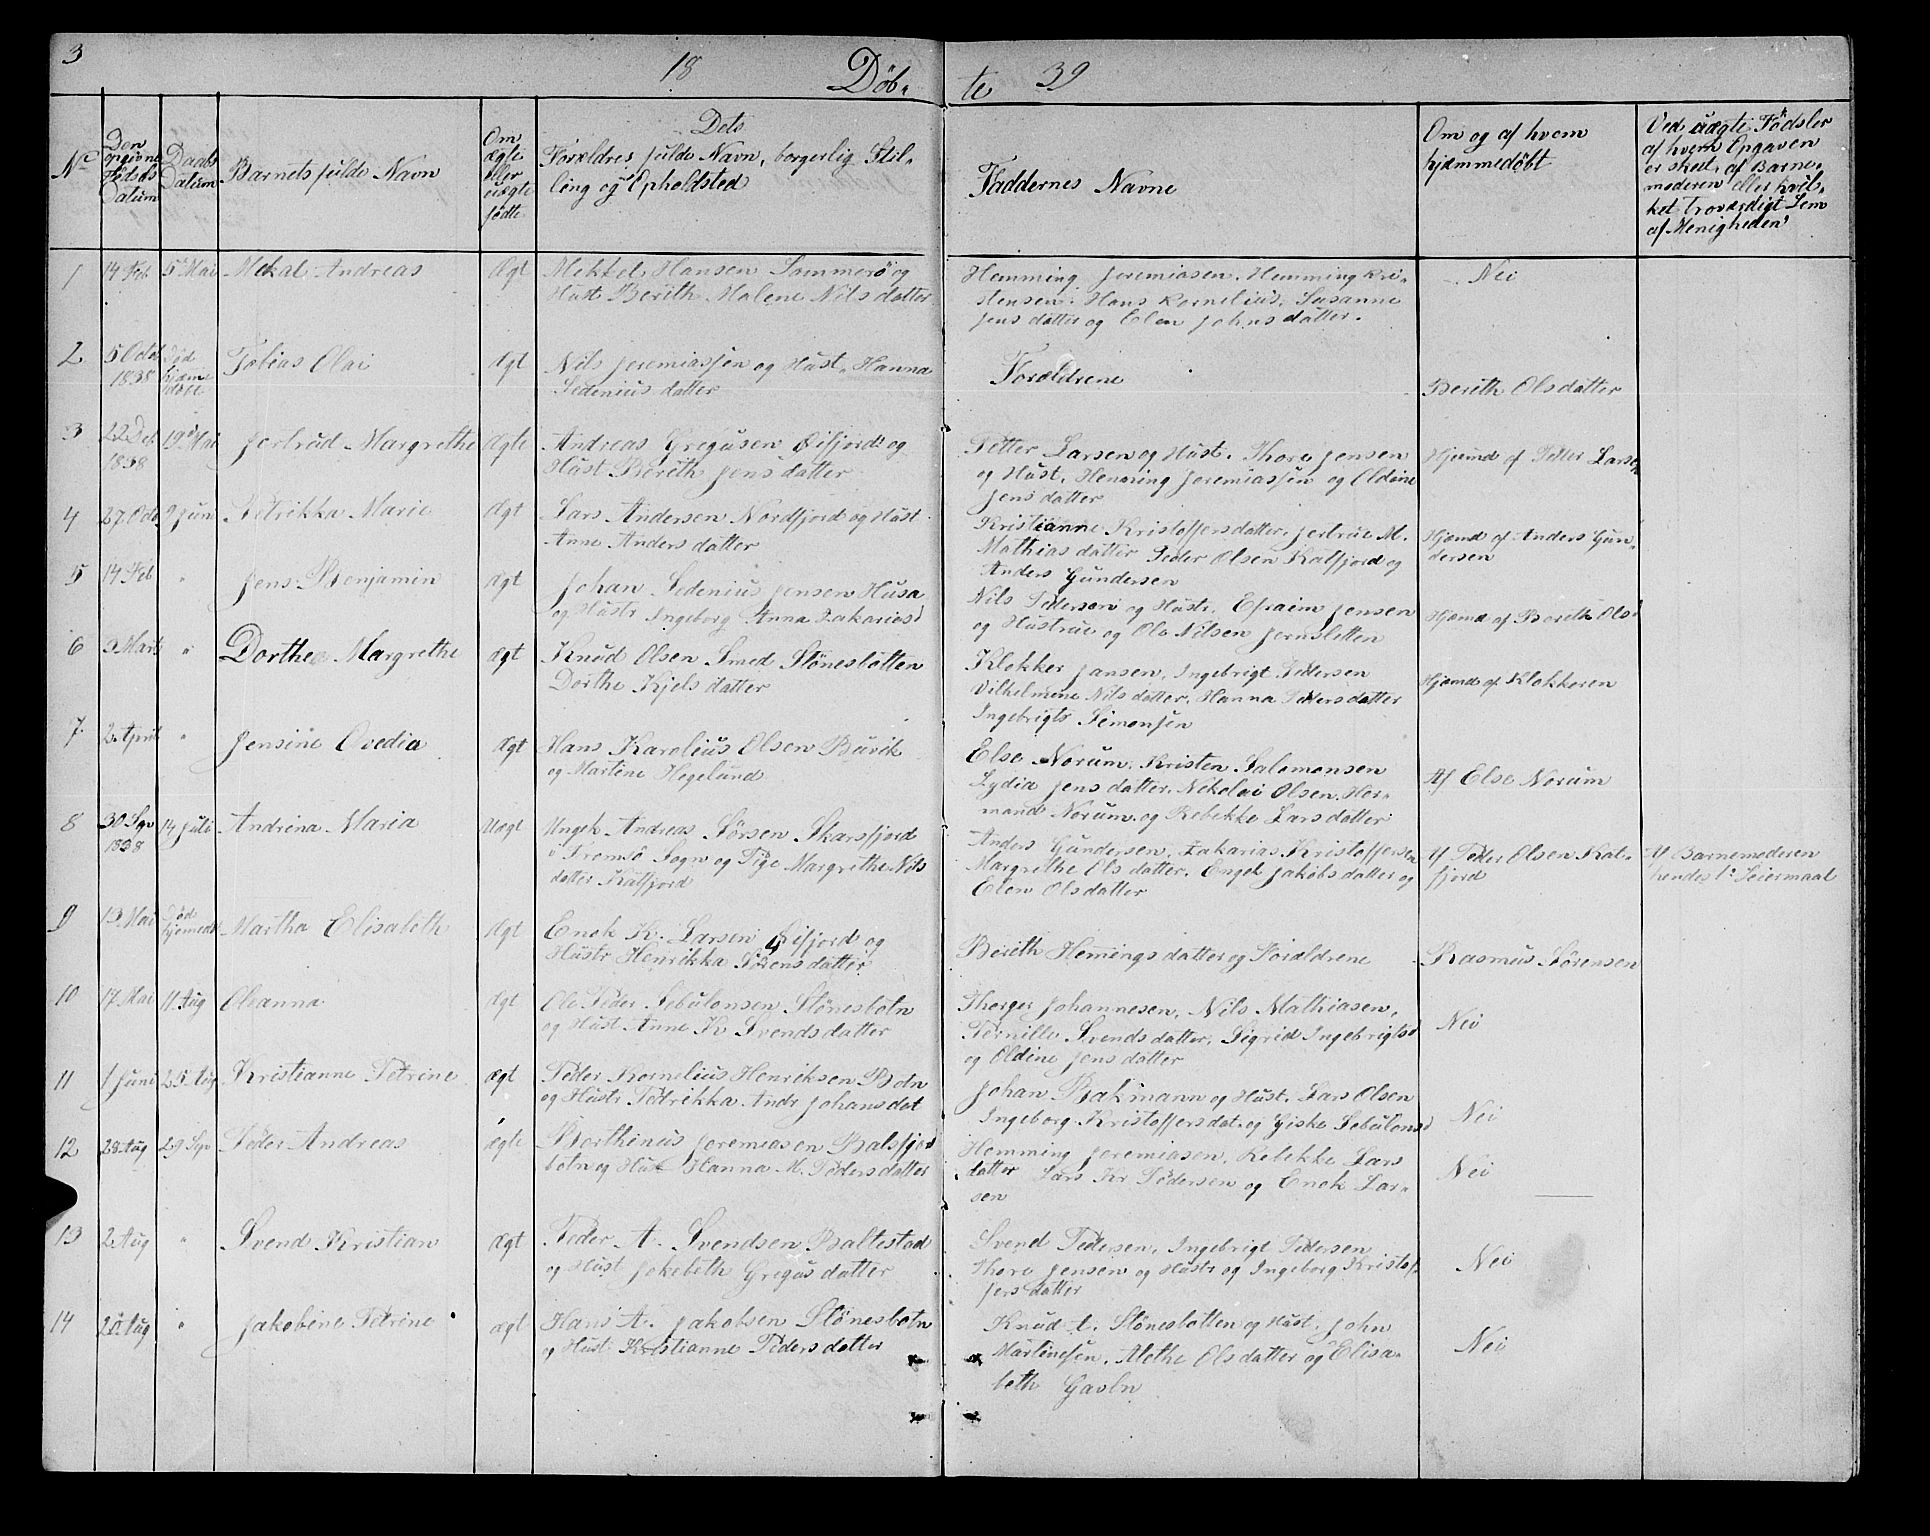 3
18 Döb-
te 39
No
Den opgivne Fødsels Datum
Daabs Datum
Barnets fulde Navn
Om ægte eller uægte fødte
Dets
Forældres fulde Navn, borgerlig Stil-
ling og Opholdsted
Faddernes Navne
Om og af hvem
hjemmedøbt
Ved uægte Fødsler
af hvem Opgaven
er skeet, af Barne-
moderen eller hvil-
ket troværdigt Lem
af Menigheden
1 14 Feb 5 Mai Mekal Andreas Ægt Mekkel Hansen Sommerö og
Hust Berith Malene Nils datter
Hemming Jeremiasen, Hemming Kri-
stensen. Hans Kornelius, Susanne
Jens datter og Elen Johns datter.
Nei
2 5 Octo 1838 Död hjeme döbt Tobias Olai Ægt Nils Jeremiassen og Hust. Hanna
Sedenius datter
Forældrene
Berith Olsdatter
3 22 Det 1838 19 Mai Jertrud Margrethe Ægte Andreas Gregusen Eifjord og
Hust Berith Jens datter
Petter Larsen og Hust. Thore Jensen
og Hust. Hemming Jeremiassen og Oldine
Jens datter
Hjemd af Petter Larsen
4 27 Octo 9 Juni Petrikka Marie Ægt Lars Andersen Nordfjord og Hust
Anne Anders datter
Kristianne Kristoffersdatter, Jertrue M.
Mathias datter Peder Olsen Katfjord og
Anders Gundersen
Hjemd af Anders Gun-
dersen
5 14 Feb " Jens Benjamin Ægt Johan Sedenius Jensen Husa
og Hustr Ingeborg Anna Zakariasd
Nils Pedersen og Hustr. Efraim Jensen
og Hustrue og Ole Nilsen Jernsletten
Hjemd af Berith Ols
6 3 Mart " Dorthea Margrethe ægt Knud Olsen Smed Stönesbotten
Dorthe Kjels datter
Klokker Jansen, Ingebrigt Pedersen
Vilhelmine Nils datter, Hanna Peders datter
Ingebrigts Simonsen
Hjemd af Klokkeren
7. 2. April " Jensine Ovedia Ægt Hans Karolius Olsen Buvik
og Martine Hegelund
Else Norum, Kristen Salomonsen
Lydia Jens datter, Nikolai Olsen, Her-
mand Norum og Rebekke Lars datter
Af Else Norum
8 30 Sep 1838 14 Juli Andrina Maria Uegt Ungk. Andreas Sörsen Skarsfjord
i Tromsö Sogn og Pige Margrethe Nils
datter Katfjord
Anders Gundersen, Zakarias Kristoffersen
Margrethe Els datter, Engel Jakobs datter og
Elen Olsdatter
Af Peder Olsen Kat-
fjord
Af Barnemoderen
hendes 1s Leiermaal
9 13 Mai Död hjemedöbt Martha Elisabeth Ægt Enok K. Larsen Eifjord og
Hustr Henrikka Sörens datter
Berith Hemings datter og Forældrene
Rasmus Sörensen
10 17 Mai 11 Aug Oleanna Ægt Ole Peder Sebulonsen Stönesbotn
og Hust Anne K Svends datter
Thorger Johannesen, Nils Mathiasen,
Pernille Svends datter, Sigrid Ingebrigtsd
og Oldine Jens datter
Nei
11 1 Juni 25 Aug Kristianne Petrine ægt Peder Kornelius Henriksen Botn
og Hustr Petrikka Andr Johans dat
Johan Bakmann og Hust. Lars Olsen
Ingeborg Kristoffers dat. og Giske Sebulonsd
Nei
12 28 Aug 29 Sep Peder Andreas ægte Borthinus Jeremiasen Balsfjord
botn og Hust Hanna M. Peders datter
Hemming Jeremiasen, Rebekke Lars
datter Lars Kr Pedersen og Enok Lar-
sen
Nei
13 2 Aug " Svend Kristian ægt Peder A. Svendsen Baltestad
og Hust Jokebeth Gregus datter
Svend Pedersen, Ingebrigt Pedersen
Thore Jensen og Hustr og Ingeborg Kristof-
fers datter
Nei
14 20 Aug " Jakobine Petrine ægt Hans A. Jakobsen Stönesbotn
og Hust Kristianne Peders datter
Knud A. Stönesbotten og Hust. John
Martinesen, Alethe Ols datter og Elisa-
beth Gavln
Nei